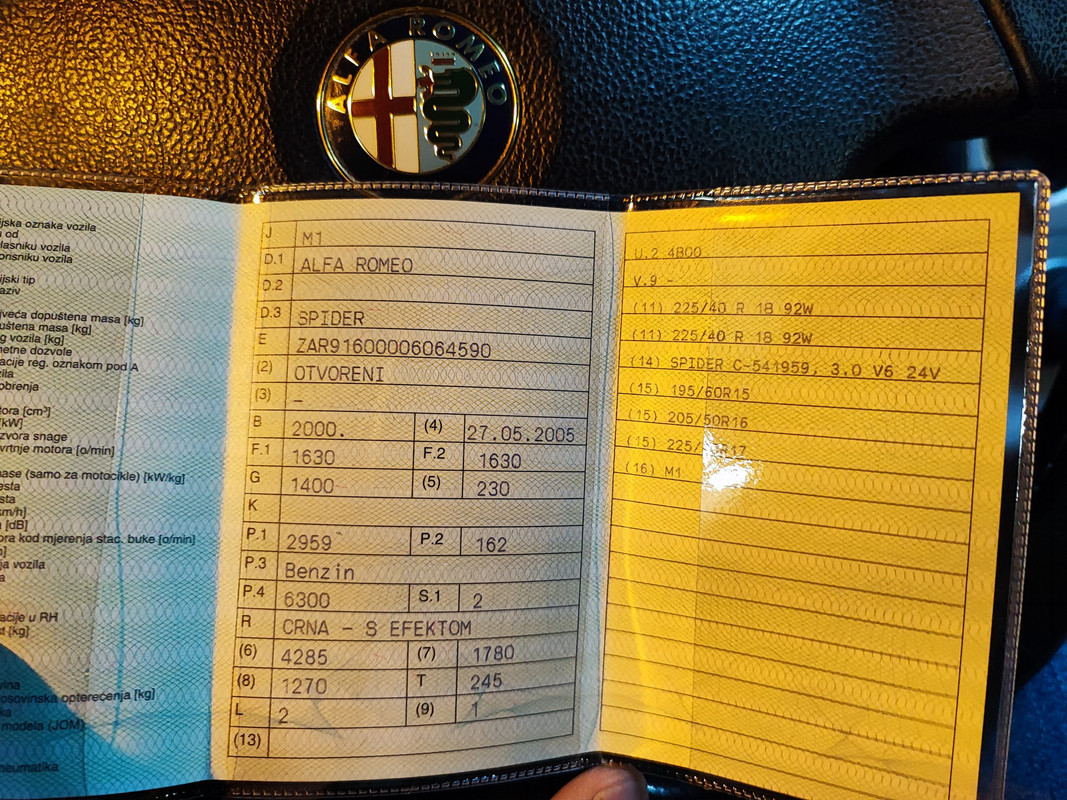 ALFA ROMEO
ijska oznaka vozila
u od
lasniku vozila
orisniku vozila
ijski tip
aziv
jveća dopuštena masa [kg]
uštena masa [kg]
g vozila [kg]
netne dozvole
acije reg. oznakom pod A
zila
obrenja
tora [cm³]
[kW]
zvora snage
vrtnje motora [o/min]
nase (samo za motocikle) [kW/kg]
esta
sta
km/h]
a [dB]
ora kod mjerenja stac. buke [o/min]
ja vozila
acije u RH
t [kg]
vina
osovinska opterećenja [kg]
ka
modela (JOM)
neumatika
J M1
D.1 ALFA ROMEO
D.2
D.3 SPIDER
E ZAR91600006064590
(2) OTVORENI
(3) –
B 2000. (4) 27.05.2005
F.1 1630 F.2 1630
G 1400 (5) 230
K
P.1 2959 P.2 162
P.3 Benzin
P.4 6300 S.1 2
R CRNA - S EFEKTOM
(6) 4285 (7) 1780
(8) 1270 T 245
L 2 (9) 1
(13)
U.2 4800
V.9 -
(11) 225/40 R 18 92W
(11) 225/40 R 18 92W
(14) SPIDER C-541959, 3.0 V6 24V
(15) 195/60R15
(15) 205/50R16
(15) 225/
(16) M1